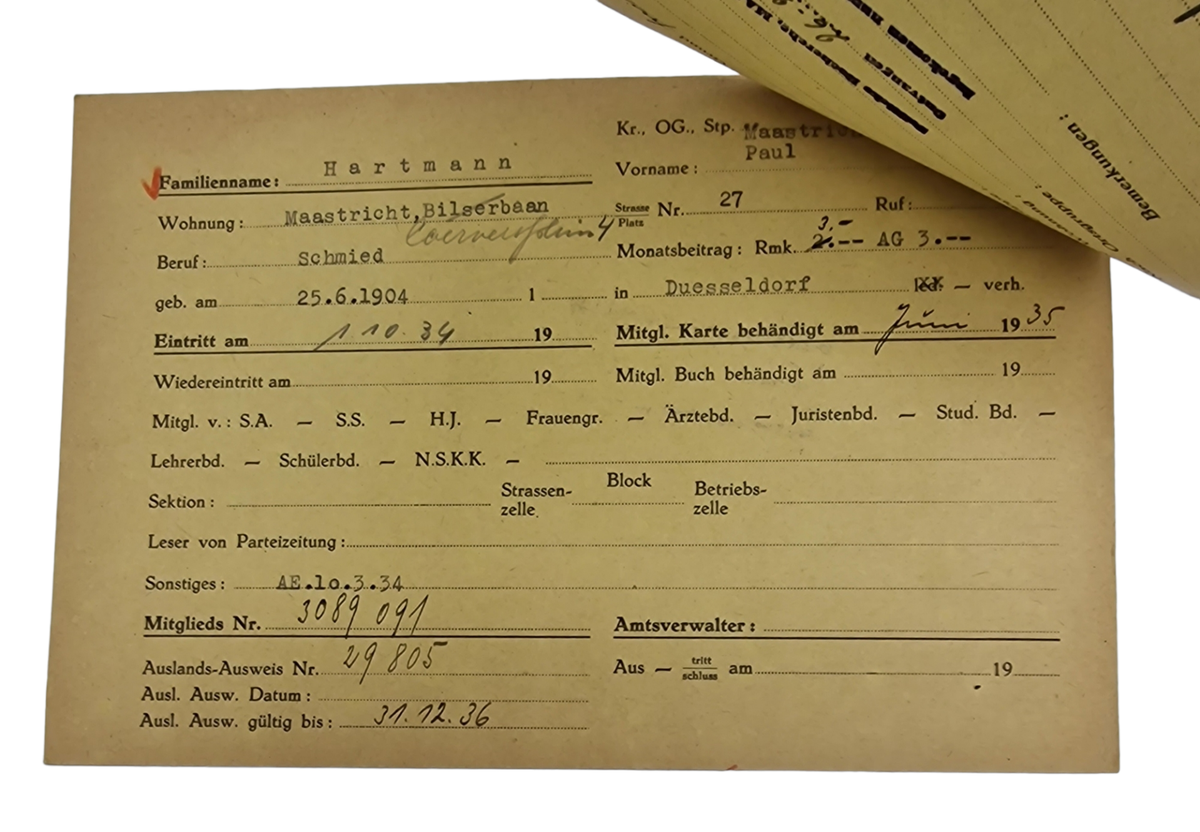 Kr., OG., Stp. Maastric
Familienname: Hartmann
Vorname: Paul
Wohnung: Maastricht, Bilserbaan
Strasse Platz Nr. 27 Ruf:
4
3.-
Beruf: Schmied
Monatsbeitrag: Rmk. 2.-- AG 3.--
geb. am 25.6.1904 1 in Duesseldorf led. — verh.
Eintritt am 1 10. 34 19
Mitgl. Karte behändigt am Juni 1935
Wiedereintritt am 19
Mitgl. Buch behändigt am 19
Mitgl. v.: S.A. — S.S. — H.J. — Frauengr. — Ärztebd. — Juristenbd. — Stud. Bd. —
Lehrerbd. — Schülerbd. — N.S.K.K. —
Sektion: Strassen-zelle Block Betriebs-zelle
Leser von Parteizeitung:
Sonstiges: AE.lo.3.34
Mitglieds Nr. 3089 091
Amtsverwalter:
Auslands-Ausweis Nr. 29 805
Aus — tritt schluss am 19
Ausl. Ausw. Datum:
Ausl. Ausw. gültig bis: 31.12.36
Bemerkungen: